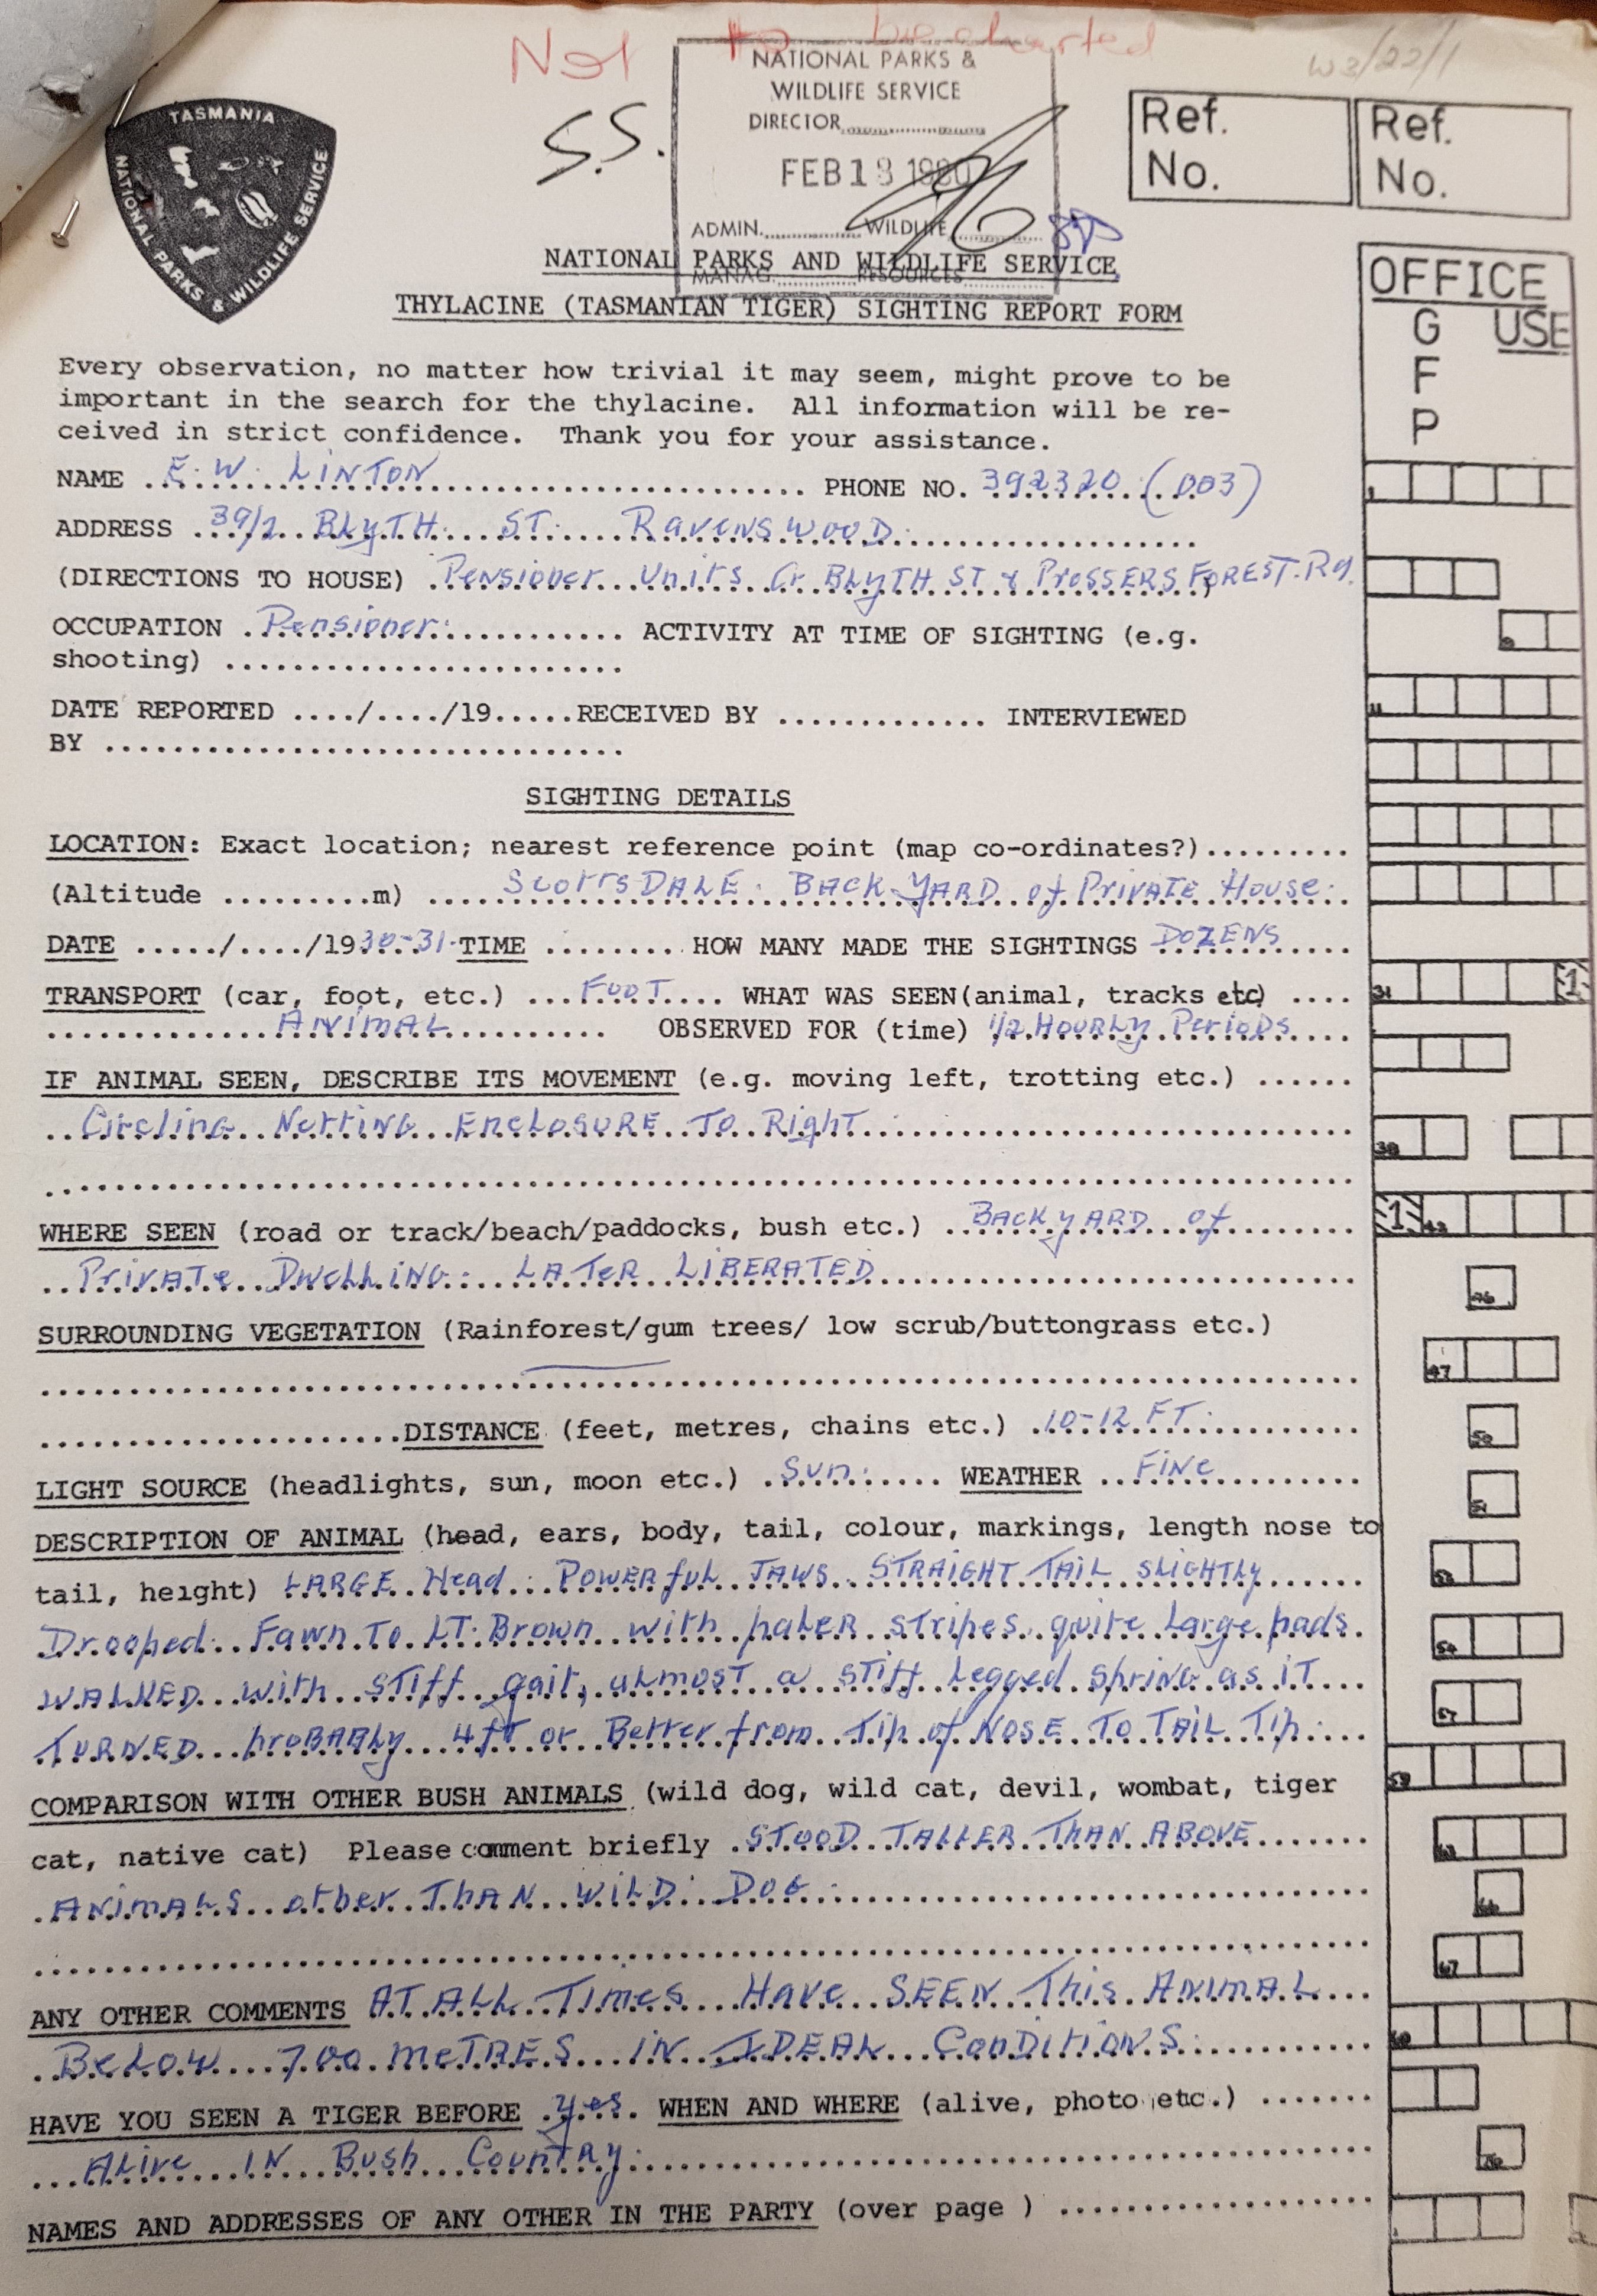 Not to be charted
W3/22/1
S.S.
NATIONAL PARKS &
WILDLIFE SERVICE
DIRECTOR
FEB 18 1980
ADMIN. WILDLIFE
MANAG. RESOURCES
TASMANIA
NATIONAL PARKS & WILDLIFE SERVICE
Ref. No.
Ref. No.
NATIONAL PARKS AND WILDLIFE SERVICE
THYLACINE (TASMANIAN TIGER) SIGHTING REPORT FORM
OFFICE
G USE
F
P
Every observation, no matter how trivial it may seem, might prove to be
important in the search for the thylacine. All information will be re-
ceived in strict confidence. Thank you for your assistance.
NAME E. W. LINTON PHONE NO. 392320 (003)
ADDRESS 39/2 BLYTH ST. RAVENSWOOD
(DIRECTIONS TO HOUSE) Pensioner Units Cr BLYTH ST & PROSSERS FOREST Rd.
OCCUPATION Pensioner ACTIVITY AT TIME OF SIGHTING (e.g.
shooting) ........................
DATE REPORTED ..../..../19.....RECEIVED BY ............. INTERVIEWED
BY ...............................
SIGHTING DETAILS
LOCATION: Exact location; nearest reference point (map co-ordinates?).........
(Altitude .........m) SCOTTSDALE. BACK YARD of PRIVATE House.
DATE ...../..../1930-31 TIME ......... HOW MANY MADE THE SIGHTINGS DOZENS
TRANSPORT (car, foot, etc.) FOOT WHAT WAS SEEN(animal, tracks etc) ....
ANIMAL OBSERVED FOR (time) 1/2 HOURLY PERIODS
IF ANIMAL SEEN, DESCRIBE ITS MOVEMENT (e.g. moving left, trotting etc.) ......
Circling Netting ENCLOSURE TO Right
WHERE SEEN (road or track/beach/paddocks, bush etc.) BACKYARD of
Private Dwelling. LATER LIBERATED
SURROUNDING VEGETATION (Rainforest/gum trees/ low scrub/buttongrass etc.)
DISTANCE (feet, metres, chains etc.) 10-12 FT.
LIGHT SOURCE (headlights, sun, moon etc.) Sun. WEATHER Fine
DESCRIPTION OF ANIMAL (head, ears, body, tail, colour, markings, length nose to
tail, height) LARGE Head. POWERfuL JAWS STRAIGHT TAIL SLIGHTLY
Drooped. Fawn To LT. Brown with paler stripes quite Large pads
WALKED with stiff gait, almost a stiff Legged spring as iT
TURNED proBABLy 4ft or Better from Tip of NOSE TO TAIL Tip.
COMPARISON WITH OTHER BUSH ANIMALS (wild dog, wild cat, devil, wombat, tiger
cat, native cat) Please comment briefly STOOD TALLER THAN ABOVE
ANIMALS other THAN WILD DOG.
ANY OTHER COMMENTS AT ALL Times Have SEEN This ANIMAL
BeLow 700 meTRES IN IDEAL ConDitiONS.
HAVE YOU SEEN A TIGER BEFORE yes WHEN AND WHERE (alive, photo etc.) .......
ALive IN Bush Country.
NAMES AND ADDRESSES OF ANY OTHER IN THE PARTY (over page ) ...................